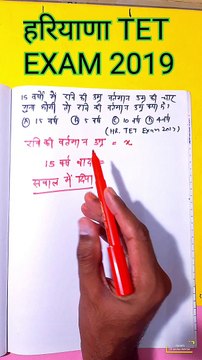 हरियाणा TET
EXAM 2019
15 वर्षों में रवि की उम्र वर्तमान उम्र की चार
गुना होगी तो रवि की वर्तमान उम्र क्या है?
Ⓐ 15 वर्ष Ⓑ 5 वर्ष Ⓒ 10 वर्ष Ⓓ 4 वर्ष
(HR. TET Exam 2019)
रवि की वर्तमान उम्र = x
15 वर्ष बाद =
सवाल में दिया